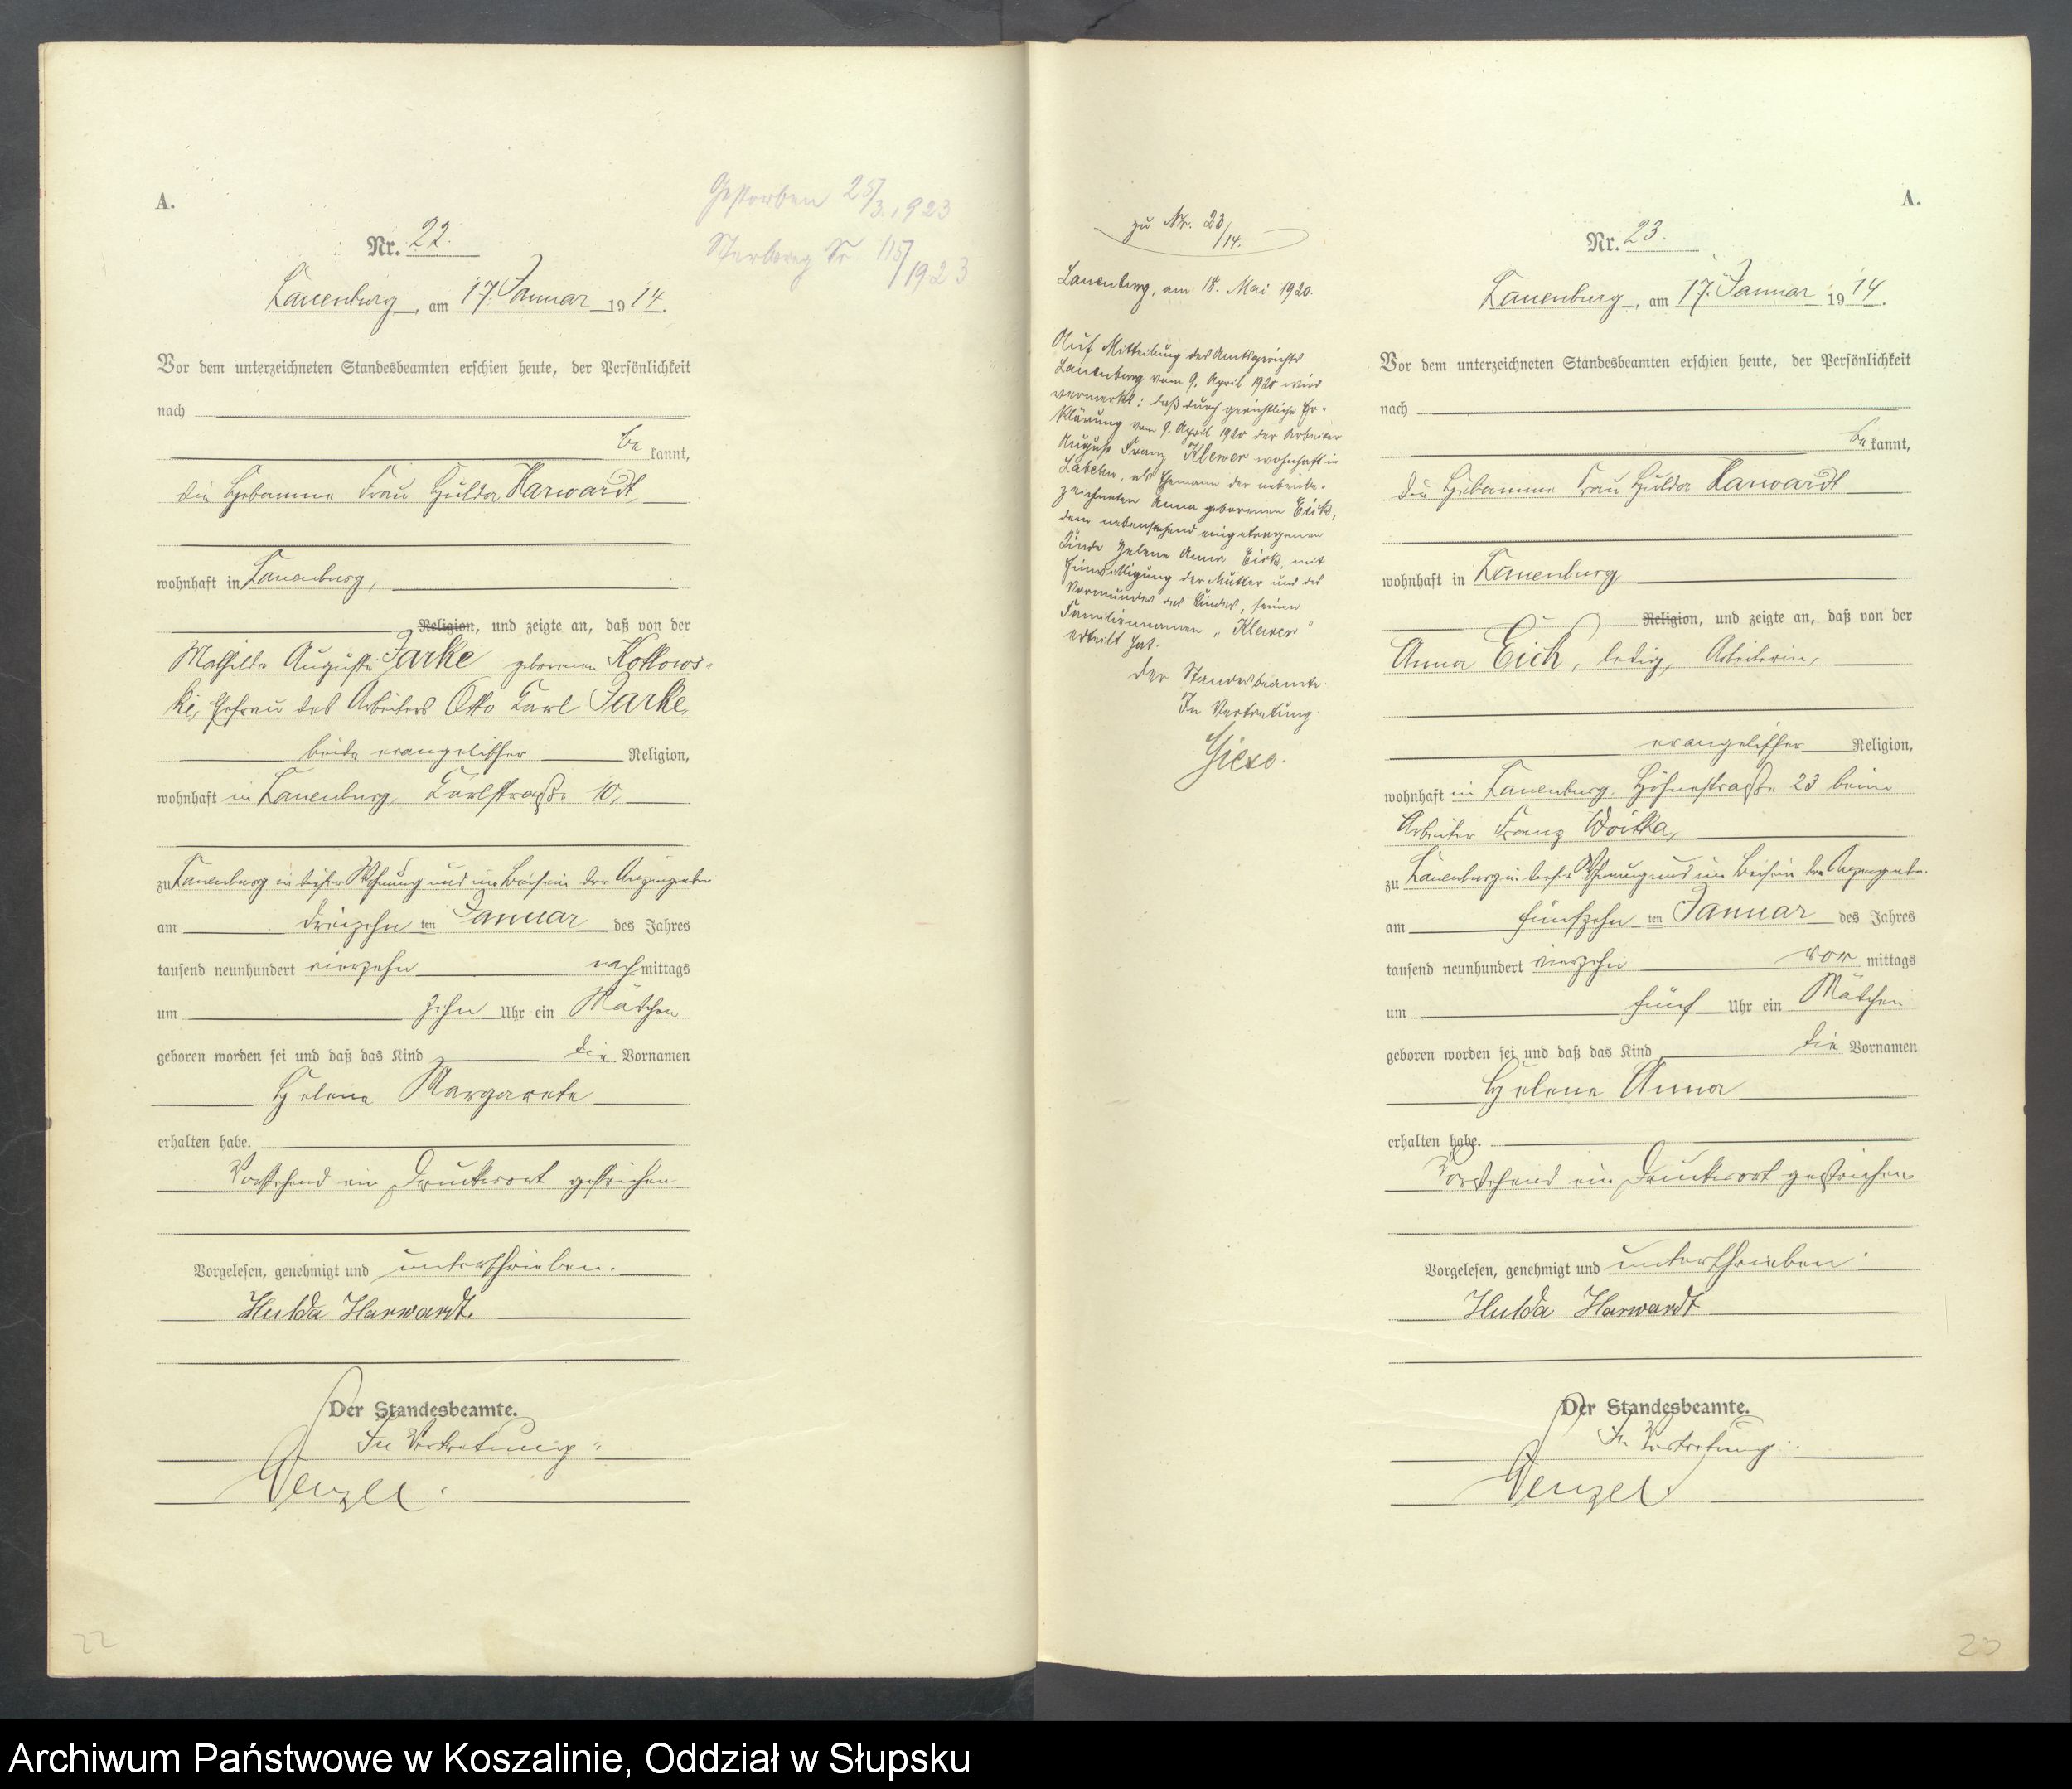 A.
Nr. 22.
Gestorben 25/3. 1923
Sterbereg Nr 115/1923
Lauenburg, am 17. Januar 1914.
Vor dem unterzeichneten Standesbeamten erschien heute, der Persönlichkeit
nach
be kannt,
die Hebamme Frau Hulda Harwardt,
wohnhaft in Lauenburg,
Religion, und zeigte an, daß von der
Mathilde Auguste Jarke geborenen Kottows-
ki, Ehefrau des Arbeiters Otto Carl Jarke,
beide evangelischer Religion,
wohnhaft in Lauenburg, Carlstraße 10,
zu Lauenburg in dieser Wohnung und im Beisein der Anzeigenden
am dreizehn ten Januar des Jahres
tausend neunhundert vierzehn nach mittags
um zehn Uhr ein Mädchen
geboren worden sei und daß das Kind die Vornamen
Helene Margarete
erhalten habe.
Vorstehend ein Druckwort gestrichen
Vorgelesen, genehmigt und unterschrieben.
Hulda Harwardt.
Der Standesbeamte.
In Vertretung:
Wenzel.
22
zu Nr. 23/14.
Lauenburg, am 18. Mai 1920.
Auf Mitteilung des Amtsgerichts
Lauenburg vom 9. April 1920 wird
vermerkt: daß durch gerichtliche Er-
klärung vom 9. April 1920 der Arbeiter
August Franz Klewer wohnhaft in
Labehn, als Ehemann der nebenbe-
zeichneten Anna geborenen Eick,
dem nebenstehend eingetragenen
Kinde Helene Anna Eick, mit
Einwilligung der Mutter und des
Vormundes des Kindes, seinen
Familiennamen „Klewer"
erteilt hat.
Der Standesbeamte.
In Vertretung.
A.
Nr. 23.
Lauenburg, am 17. Januar 1914.
Vor dem unterzeichneten Standesbeamten erschien heute, der Persönlichkeit
nach
be kannt,
die Hebamme Frau Hulda Harwardt
wohnhaft in Lauenburg
Religion, und zeigte an, daß von der
Anna Eick, ledig, Arbeiterin,
evangelischer Religion,
wohnhaft in Lauenburg, Höhnestraße 23 beim
Arbeiter Franz Woitka,
zu Lauenburg in dieser Wohnung und im Beisein der Anzeigenden
am fünfzehn ten Januar des Jahres
tausend neunhundert vierzehn vor mittags
um fünf Uhr ein Mädchen
geboren worden sei und daß das Kind die Vornamen
Helene Anna
erhalten habe.
Vorstehend ein Druckwort gestrichen
Vorgelesen, genehmigt und unterschrieben.
Hulda Harwardt
Der Standesbeamte.
In Vertretung:
Wenzel
23
Archiwum Państwowe w Koszalinie, Oddział w Słupsku